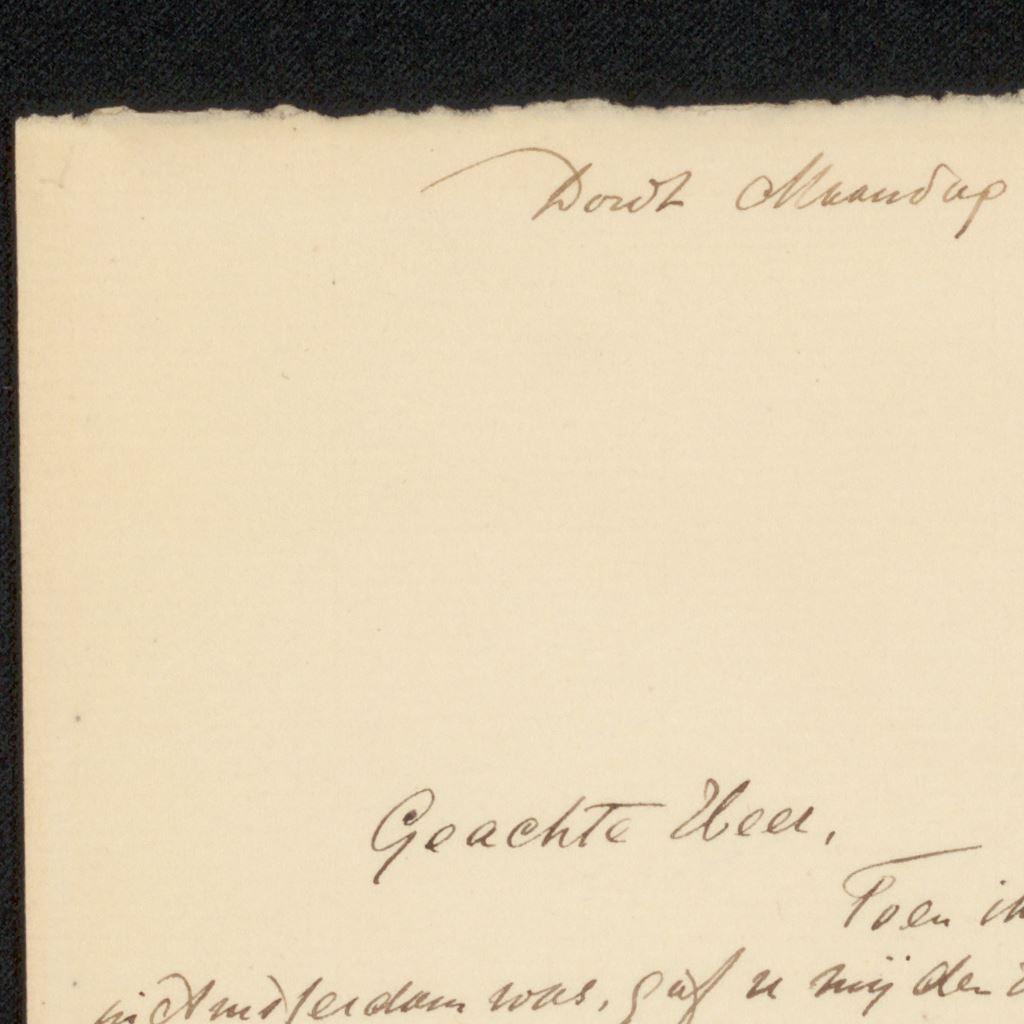 Dordt Maandag
Geachte Heer,
Toen ik
in Amsterdam was, gaf u mij den